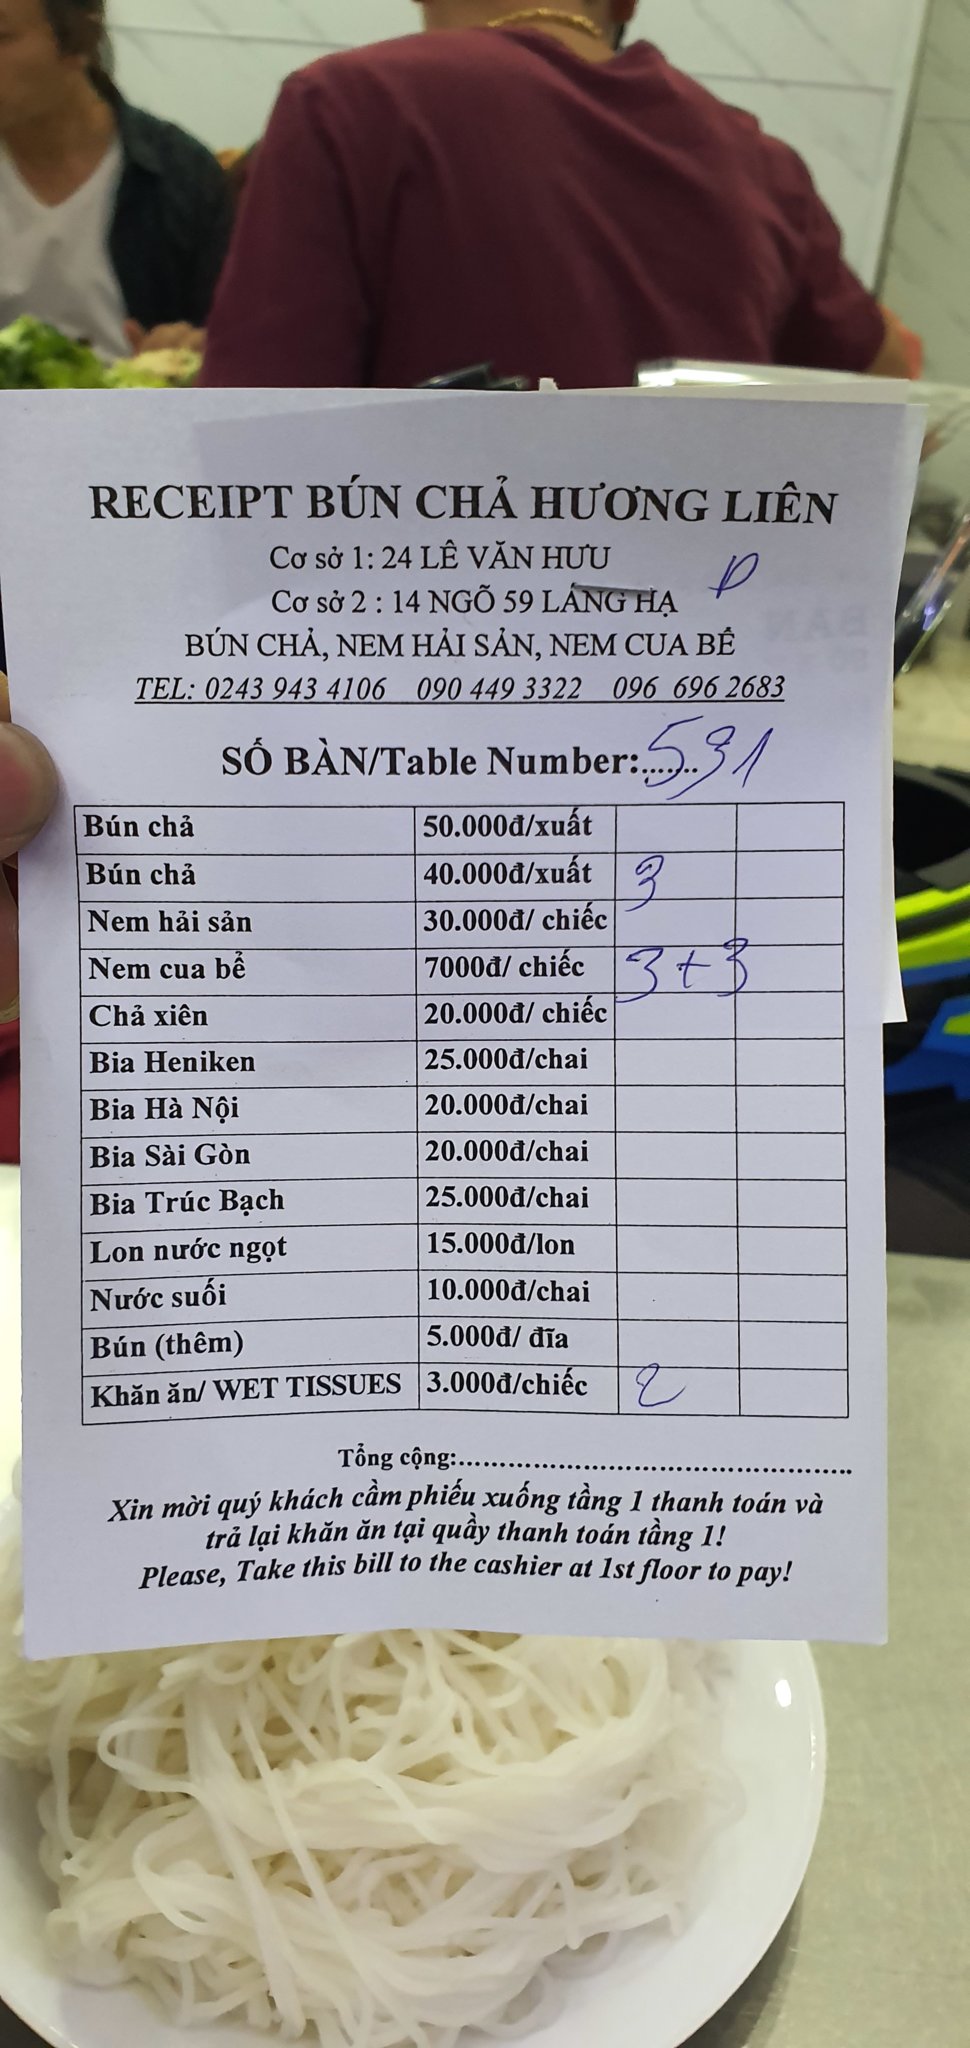 RECEIPT BÚN CHẢ HƯƠNG LIÊN
Cơ sở 1: 24 LÊ VĂN HƯU
Cơ sở 2 : 14 NGÕ 59 LÁNG HẠ
BÚN CHẢ, NEM HẢI SẢN, NEM CUA BỂ
TEL: 0243 943 4106 090 449 3322 096 696 2683
SỐ BÀN/Table Number:....... 531
Bún chả 50.000đ/xuất
Bún chả 40.000đ/xuất 3
Nem hải sản 30.000đ/ chiếc
Nem cua bể 7000đ/ chiếc 3+3
Chả xiên 20.000đ/ chiếc
Bia Heniken 25.000đ/chai
Bia Hà Nội 20.000đ/chai
Bia Sài Gòn 20.000đ/chai
Bia Trúc Bạch 25.000đ/chai
Lon nước ngọt 15.000đ/lon
Nước suối 10.000đ/chai
Bún (thêm) 5.000đ/ đĩa
Khăn ăn/ WET TISSUES 3.000đ/chiếc 2
Tổng cộng:..........................................................
Xin mời quý khách cầm phiếu xuống tầng 1 thanh toán và
trả lại khăn ăn tại quầy thanh toán tầng 1!
Please, Take this bill to the cashier at 1st floor to pay!